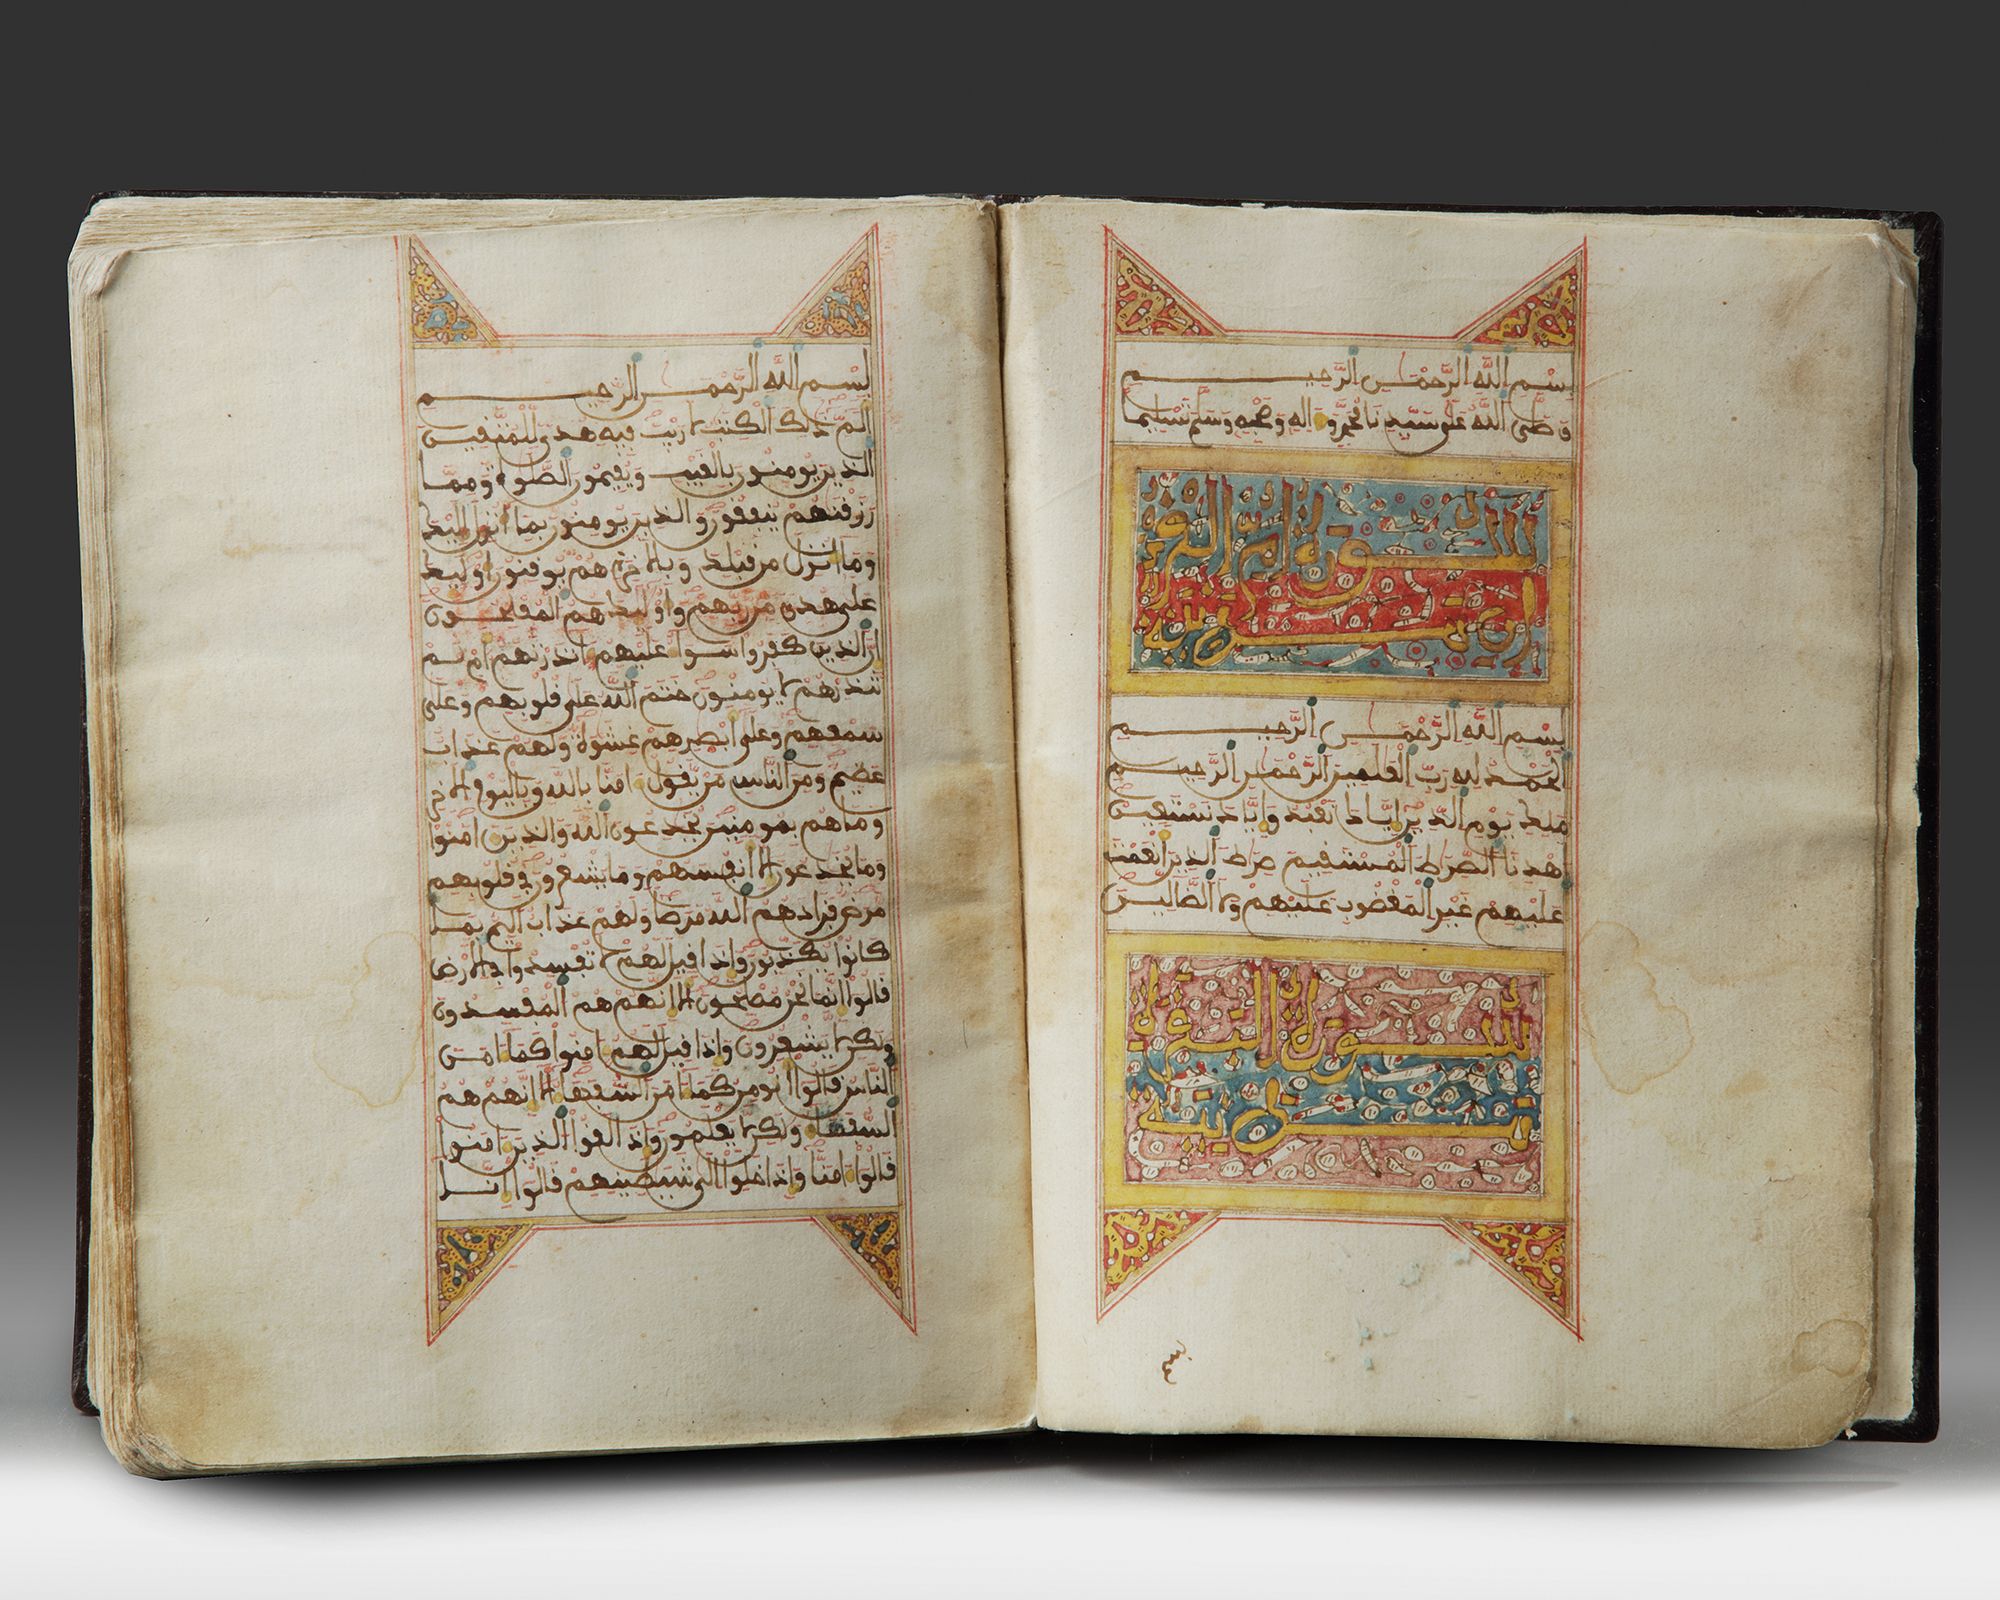 بسم الله الرحمن الرحيم
وصلى الله على سيدنا محمد واله وصحبه وسلم تسليما
سورة ام القرءان
بسم الله الرحمن الرحيم
الحمد لله رب العلمين الرحمن الرحيم
ملك يوم الدين اياك نعبد واياك نستعين
اهدنا الصراط المستقيم صراط الذين انعمت
عليهم غير المغضوب عليهم ولا الضالين
سورة البقرة
مدنية
بسم الله الرحمن الرحيم
الم ذلك الكتب لا ريب فيه هدى للمتقين
الذين يومنون بالغيب ويقيمون الصلوة ومما
رزقنهم ينفقون والذين يومنون بما انزل اليك
وما انزل من قبلك وبالاخرة هم يوقنون اوليك
على هدى من ربهم واوليك هم المفلحون
ان الذين كفروا سوا عليهم انذرتهم ام لم
تنذرهم لا يومنون ختم الله على قلوبهم وعلى
سمعهم وعلى ابصرهم غشوة ولهم عذاب
عظيم ومن الناس من يقول امنا بالله وباليوم الاخر
وما هم بمومنين يخدعون الله والذين امنوا
وما يخدعون الا انفسهم وما يشعرون في قلوبهم
مرض فزادهم الله مرضا ولهم عذاب اليم بما
كانوا يكذبون واذا قيل لهم لا تفسدوا في الارض
قالوا انما نحن مصلحون الا انهم هم المفسدون
ولكن لا يشعرون واذا قيل لهم امنوا كما امن
الناس قالوا انومن كما امن السفها الا انهم هم
السفها ولكن لا يعلمون واذا لقوا الذين امنوا
قالوا امنا واذا خلوا الى شيطينهم قالوا انا